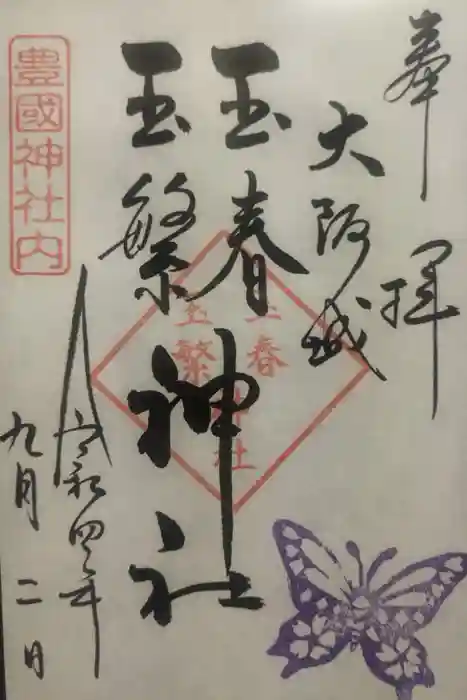 奉拝
大阪城
玉春
玉繁
神社
玉春
玉繁
神社
豊國神社内
令和四年
九月二日